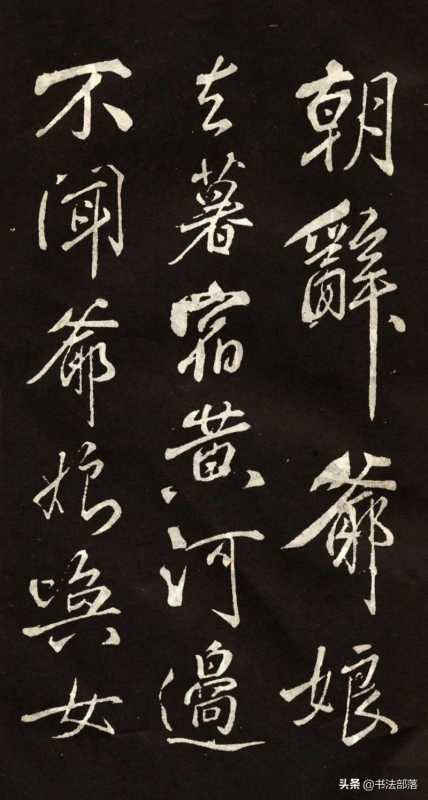 朝辭爺娘
去暮宿黄河邊
不聞爺娘喚女
头条 @书法部落